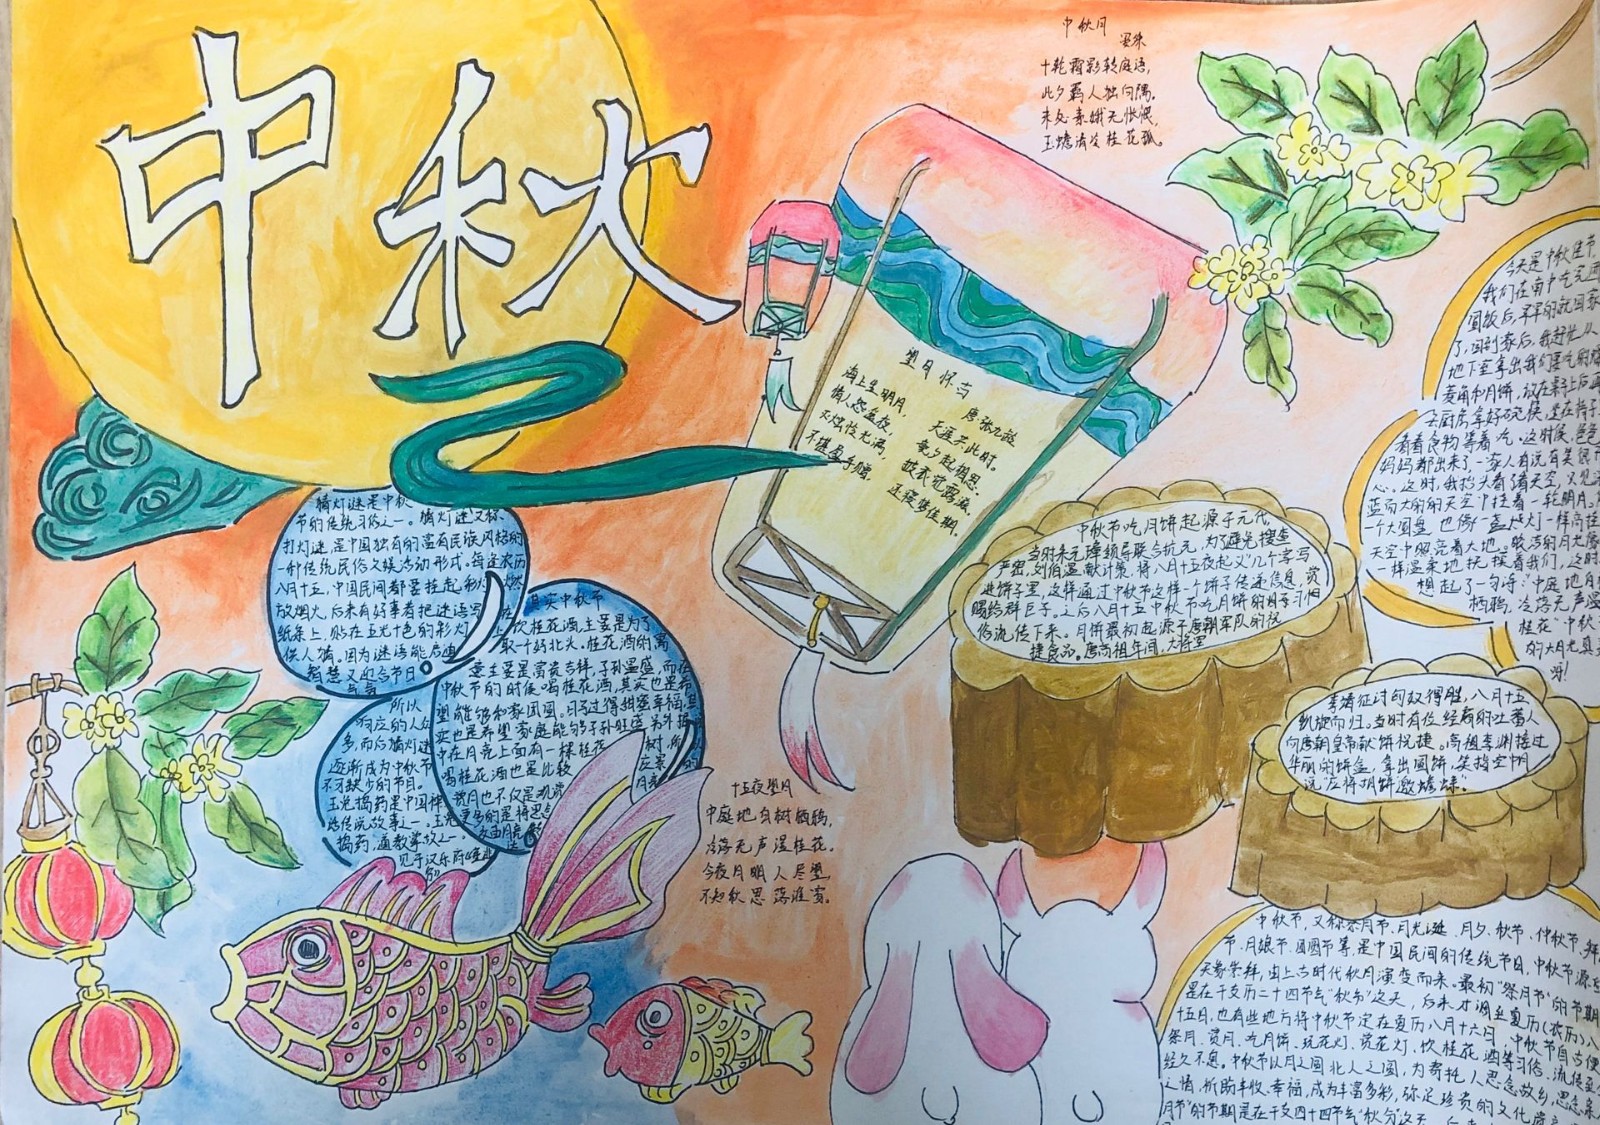 中秋
中秋月
十轮霜影转庭语,
此夕羁人独向隅。
未必素娥无怅恨,
玉蟾清冷桂花孤。
望月怀古
唐 张九龄
海上生明月,
天涯共此时。
情人怨遥夜,
竟夕起相思。
灭烛怜光满,
披衣觉露滋。
不堪盈手赠,
还寝梦佳期。
今天是中秋佳节
我们在南中吃完团
圆饭后,早早的就回家
了,回到家后,我赶忙从
地下室拿出我们要吃的
菱角和月饼,放在桌子上后再
去厨房拿好碗筷,坐在椅子上
看着食物等着吃。这时候,爸爸
妈妈都出来了一家人有说有笑很开
心。这时,我抬头看着天空,又见湛
蓝而大的的天空中挂着一轮明月。
一个大圆盘也像一盏灯一样高挂
天空中照亮着大地。皎洁的月光像
一样温柔地抚摸着我们,这时
想起了一句诗:“中庭地白
栖鸦,冷落无声湿
桂花”中秋
的大月亮真
呀!
猜灯谜是中秋
节的传统习俗之一。猜灯谜又称
打灯谜,是中国独有的富有民族风格的
一种传统民俗文娱活动形式。每逢农历
八月十五,中国民间都要挂起彩灯,燃
放烟火,后来有好事者把谜语写在
纸条上,贴在五光十色的彩灯上
供人猜。因为谜语能启迪
智慧又迎合节日
所以
响应的人众
多,而后猜灯谜
逐渐成为中秋节
不可缺少的节目。
玉兔捣药是中国神
话传说故事之一。
见于汉乐府
其实中秋节
饮桂花酒,主要是为了
取一个好兆头。桂花酒的寓
意主要是富贵吉祥,子孙昌盛,而在
中秋节的时候喝桂花酒,其实也是希
望能够和家团圆。日子过得甜蜜幸福,
实也是希望家庭能够子孙旺盛
中在月亮上面有一棵桂花树,所
喝桂花酒也是比较应景
赏月也不仅是观赏月亮
中秋节吃月饼起源于元代,
当时朱元璋领导联合抗元,为了避免搜查
严密,刘伯温献计策,将八月十五夜起义几个字写
进饼子里,这样通过中秋节这样一个饼子传递信息,赏
赐给群臣子。之后八月十五中秋节吃月饼的
俗流传下来。月饼最初起源于唐朝军队的祝
捷食品。唐高祖年间,大将军
李靖征讨匈奴得胜,八月十五
凯旋而归。当时有位经商的吐蕃人
向唐朝皇帝献饼祝捷。高祖李渊接过
华丽的饼盒,拿出圆饼,笑指空中明
说“应将胡饼邀蟾蜍”。
十五夜望月
中庭地白树栖鸦,
冷落无声湿桂花。
今夜月明人尽望,
不知秋思落谁家。
中秋节,又称祭月节、月光诞、月夕、秋节、仲秋节、拜
节、月娘节、团圆节等,是中国民间的传统节日,中秋节源
天象崇拜,由上古时代秋月演变而来。最初“祭月节”的节期
是在干支历二十四节气“秋分”这天,后来才调至夏历(农历)八
十五日,也有些地方将中秋节定在夏历八月十六日,中秋节自古便
祭月、赏月、吃月饼、玩花灯、赏花灯、饮桂花酒等习俗,流传至
经久不息。中秋节以月之圆兆人之圆,为寄托人思念故乡,思念亲
之情,祈盼丰收、幸福,成为丰富多彩,弥足珍贵的文化
月节“的节期是在干支四十四节气“秋分”这天